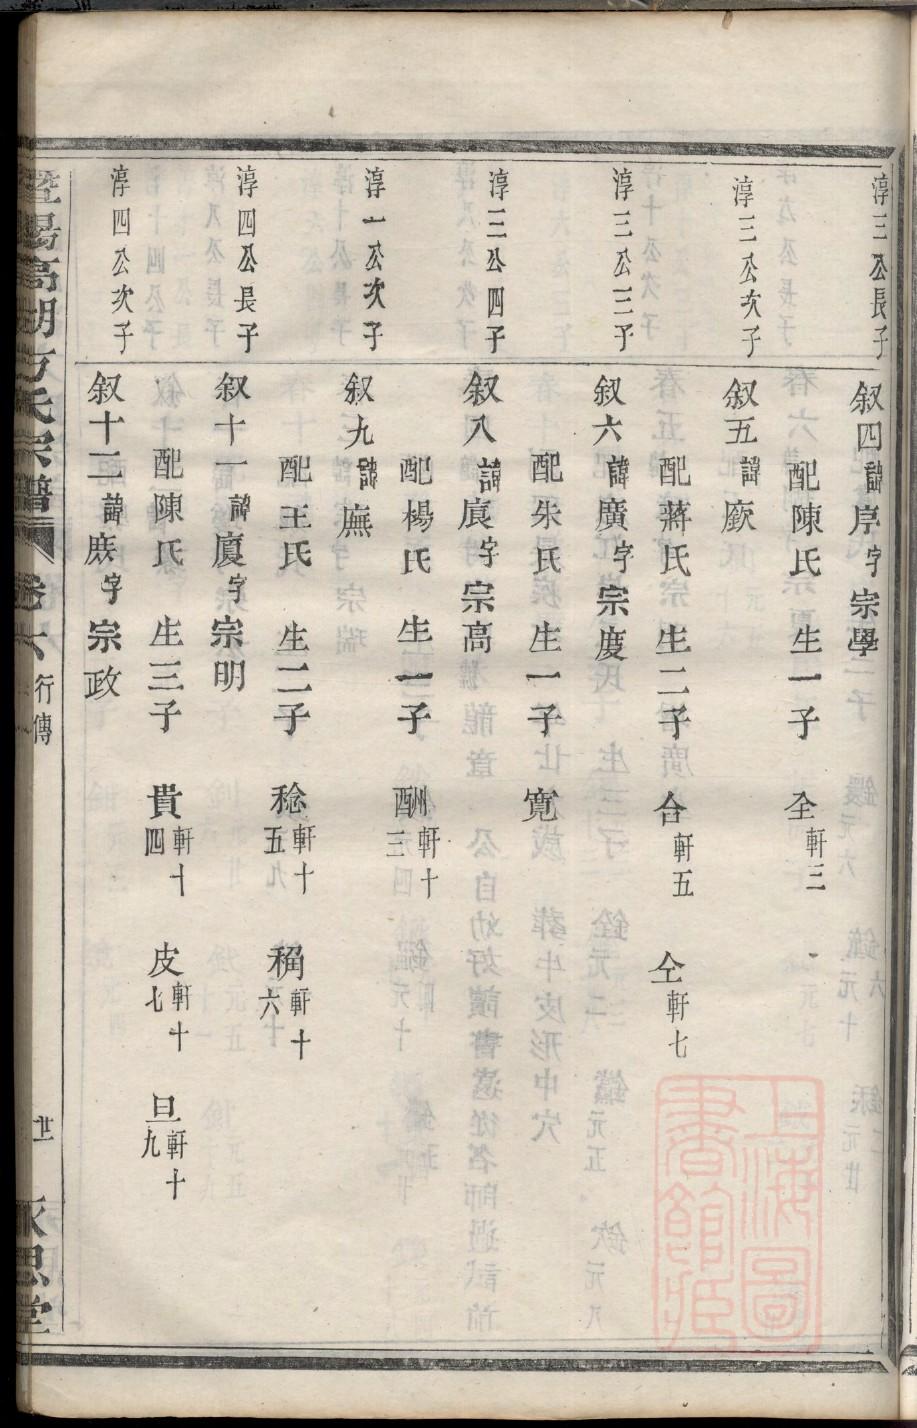 淳三公長子
叙四諱庠字宗學
配陳氏 生一子 全軒三
淳三公次子
叙五諱廞
配蔣氏 生二子 合軒五 仝軒七
淳三公三子
叙六諱廣字宗慶
配朱氏 生一子 寬
淳三公四子
叙八諱字宗高
配楊氏 生一子 酬軒十三
淳一公次子
叙九諱廡
配王氏 生二子 稔軒十五 稱軒十六
淳四公長子
叙十一諱廈字宗明
配陳氏 生三子 貴軒十四 皮軒十七 旦軒十九
淳四公次子
叙十二諱字宗政
暨陽高湖方氏宗譜 卷六 行傳 廿 永思堂
上海圖書館藏